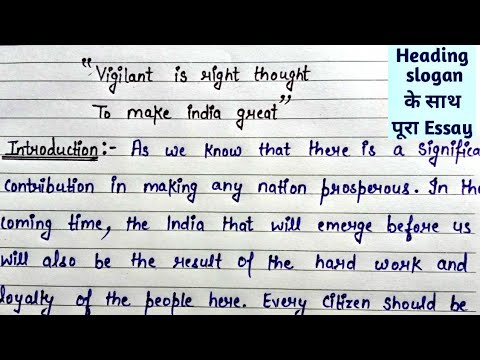 "Vigilant is right thought
To make india great"
Introduction:- As we know that there is a significa
contribution in making any nation prosperous. In the
coming time, the India that will emerge before us
will also be the result of the hard work and
loyalty of the people here. Every citizen should be
Heading
slogan
के साथ
पूरा Essay